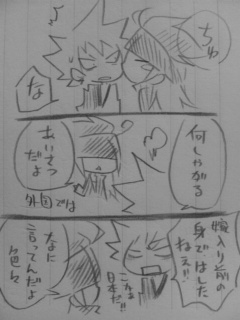 ちゅ
な
何しやがる
あいさつ
だよ
外国では
嫁入り前の
身ではした
ねぇ!!
ここは
日本だ!!
なに
言ってんだよ